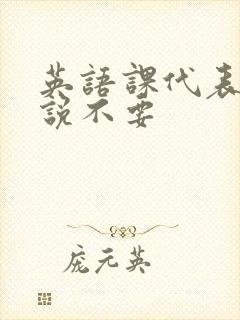 英語課代表
說不要
庞元英